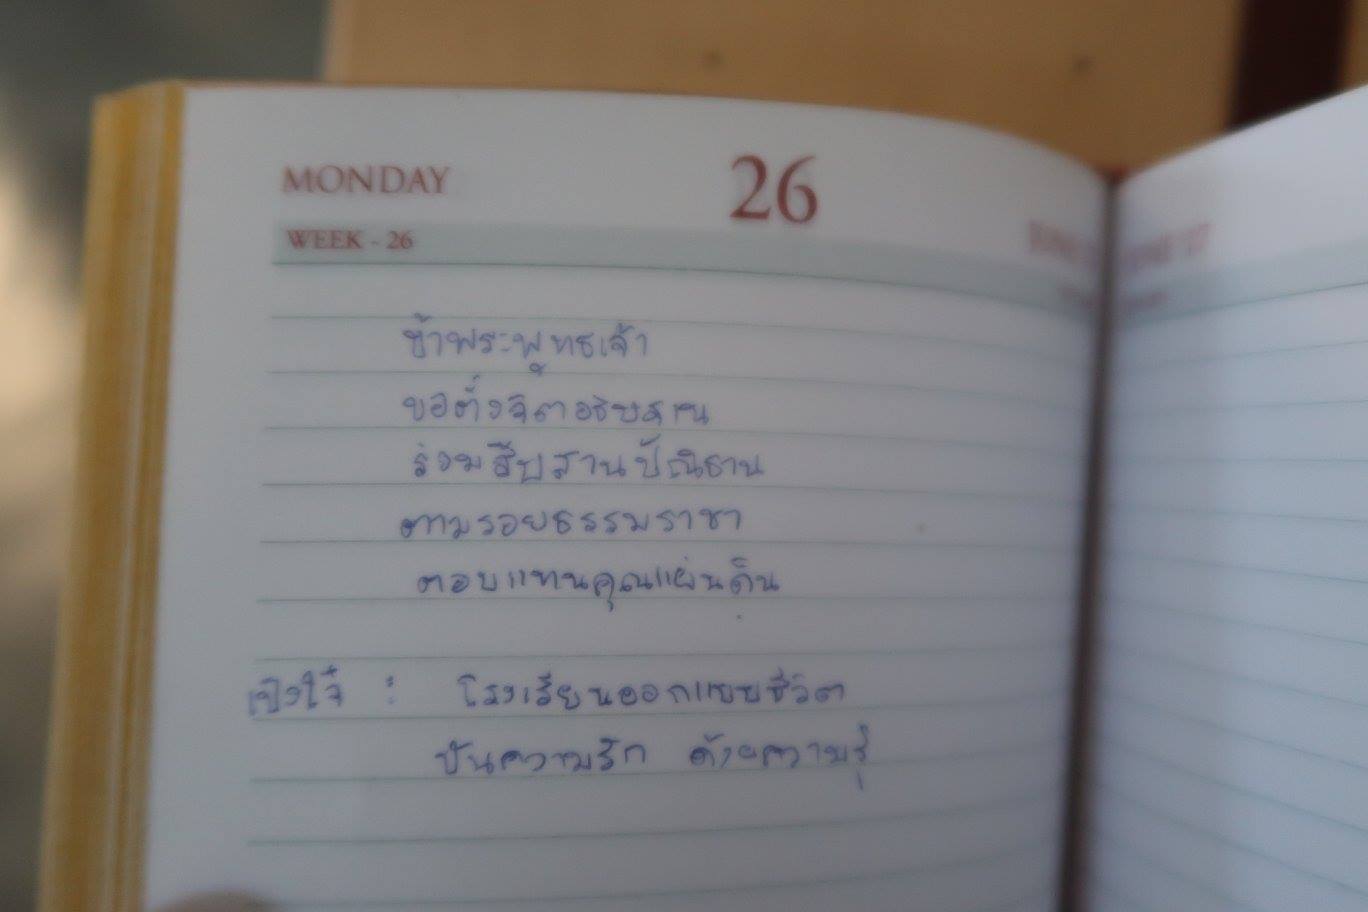 MONDAY
26
WEEK - 26
ข้าพระพุทธเจ้า
ขอตั้งจิตอธิษฐาน
ร่วมสืบสานปณิธาน
ตามรอยธรรมราชา
ตอบแทนคุณแผ่นดิน
โรงเรียนออกแบบชีวิต
ปันความรัก ด้วยความรู้